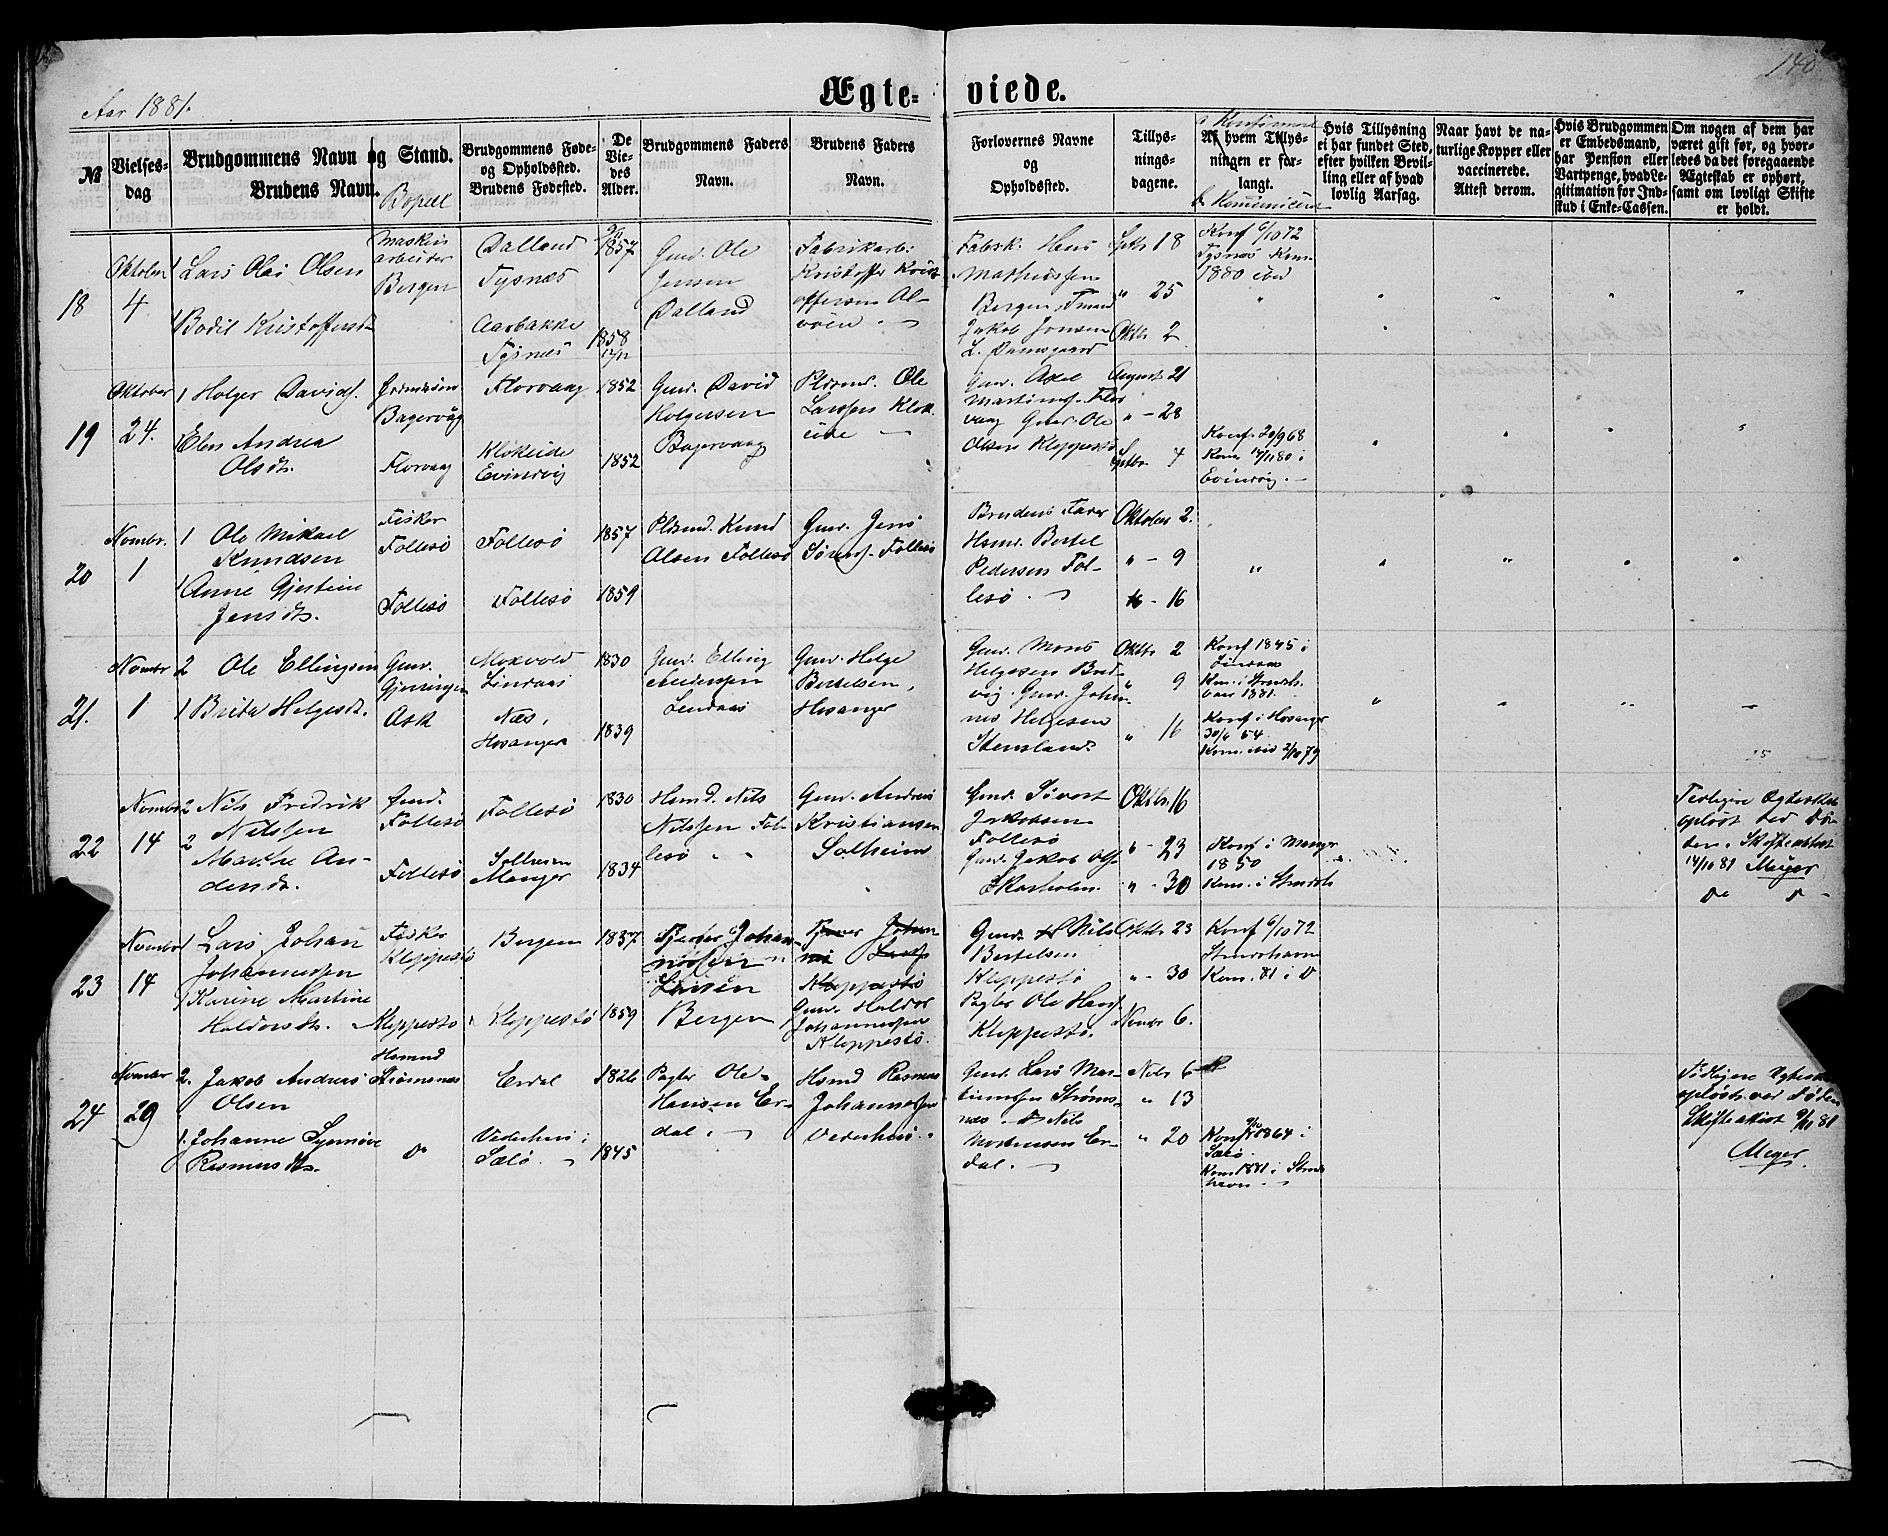 140
Aar 1881.
Ægte- viede.
No
Vielses-
dag
Brudgommens Navn og Stand.
Brudens Navn.
Bopæl
Brudgommens Føde-
og Opholdssted.
Brudens Fødested.
De
Vie-
des
Alder.
Brudgommens Faders
Navn.
Brudens Faders
Navn.
Forlovernes Navne
og
Opholdssted.
Tillys-
nings-
dagene.
Af hvem Tillys-
ningen er for-
langt.
Hvis Tillysning
ei har fundet Sted,
efter hvilken Bevil-
ling eller af hvad
lovlig Aarsag.
Naar havt de na-
turlige Kopper eller
vaccinerede.
Attest derom.
Hvis Brudgommen
er Embedsmand,
har Pension eller
Vartpenge, hvad Le-
gitimation for Ind-
skud i Enke-Cassen.
Om nogen af dem har
været gift før, og hvor-
ledes da det foregaaende
Ægteskab er ophørt,
samt om lovligt Skifte
er holdt.
18
Oktober
4.
1 Lars Olai Olsen
1 Bodil Kristoffersdr
Maskin
arbeider
Bergen
Dalland
Tysnæs
Aarbakke
Tysnæs
1857
1858
Gmd. Ole
Jensen
Dalland
Fabrikarb.
Kristoffer Krist
offersen Al-
vøen
Fabrk. Hans
Mathiassen
Bergen
Jakob Jonsen
L. Damsgaard
Sptbr 18
" 25
Oktbr 2
Konf 6/10 72
Tysnæs Kom
1880 ibd
19
Oktober
24.
1 Holger Davids.
1 Elen Andrea
Olsdtr.
Bagervåg
Florvaag
Florvaag
Klokeide
Evindvig
1852
1852
Gmd. David
Holgersen
Bagervaag
Pldsmd. Ole
Larssen Klok
eide
Gmd. Axel
Martins. Flor
vaag Gmd. Ole
Olsen Kleppestø
August 21
" - 28
Sptbr. 4
Konf. 20/9 68
Kom 14/11 80 i
Evindvig.
20
Novmbr.
1
1 Ole Mikael
Knudsen
1 Anne Gjertine
Jensdtr.
Fisker
Follesø
Follesø
Follesø
Follesø
1857
1859
Pldsmd. Knud
Olsen Follesø
Gmd. Jens
Sørens. Follesø
Brudens Fader
Hsmd. Bertel
Pedersen Fol-
lesø
Oktober 2.
" - 9
" - 16
21.
Novmbr
1
2 Ole Ellingsen
1 Brita Helgesdtr.
Gmd.
Ask
Lindaas
Næs,
Hosanger
1830
1839
Gmd. Elling
Andersen
Lindaas
Gmd. Helge
Bertelsen,
Hosanger
Gmd. Mons
Helgesen Bred-
vig. Gmd. Johan-
nes Helgesen
Stensland.
Oktbr 2
" 9
" 16
Konf 1845 i
Lindaas
Kom. i Strndh.
1881.
Konf. i Hosanger
30/4 54
Kom. ibid 2/10 79
22
Novmbr
14
2 Nils Fredrik
Nilssen
2 Marthe An-
densdr.
Gmd.
Follesø
Follesø
Follesø
Solheim
Manger
1830
1834
Hsmd. Nils
Nilssen Fol-
lesø
Gmd. Anders
Kristiansen
Solheim
Gmd. Sivert
Jakobsen
Follesø
Gmd. Jakob Ols.
Skarholm.
Oktbr. 16
" - 23
" - 30
Konf. i Manger
1850
Kom. i Strndh
Tidligere Ægteskab
opløst ved Dø-
den. Skifteattest
14/10 81 Meyer
Do Do
23
Novmbr
14
1 Lars Johan
Johannessen
1 Karine Martine
Haldorsdtr.
Fisker
Kleppestø
Kleppestø
Bergen
Kleppestø
1857
1859
Johan-
nessen
Bergen
Johan
Kleppestø
Gmd. Haldor
Johannessen
Kleppestø.
Gmd. Nils
Bertelsen
Kleppestø
Pagter Ole Hans.
Kleppestø.
Oktbr 23
" - 30
Novbr 6.
Konf 6/10 72
Strndehavn
Kom. 81 i Do
24
Novmbr
29
2. Jakob Andreas
Olsen
1. Johanne Synnøve
Rasmusdtr.
Hsmnd
Strømsnes
Do
Erdal
Vederhus i
Sælø
1826
1845
Pagter Ole
Hansen Er-
dal
Hsmd Rasmus
Johannessen
Vederhus.
Gmd. Lars Mar-
tinussen Strøms-
nes Nils
Mortensen Er-
dal.
Nvbr 6
" 13
" 20
Konf 1864 i
Sælø
Kom 1881 i Strnde
havn
Tidligere Ægteskab
opløst ved Døden
Skifteattest 9/11 81
Meyer.